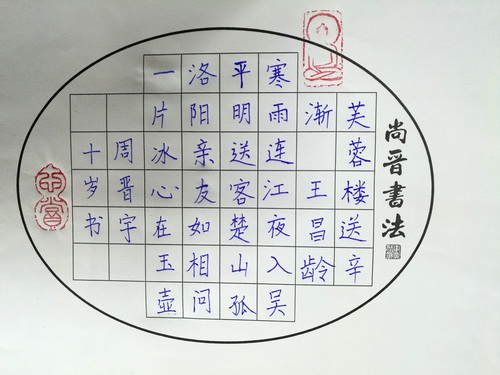 尚晋書法
芙蓉楼送辛
渐 王昌龄
寒雨连江夜入吴
平明送客楚山孤
洛阳亲友如相问
一片冰心在玉壶
周晋宇
十岁书